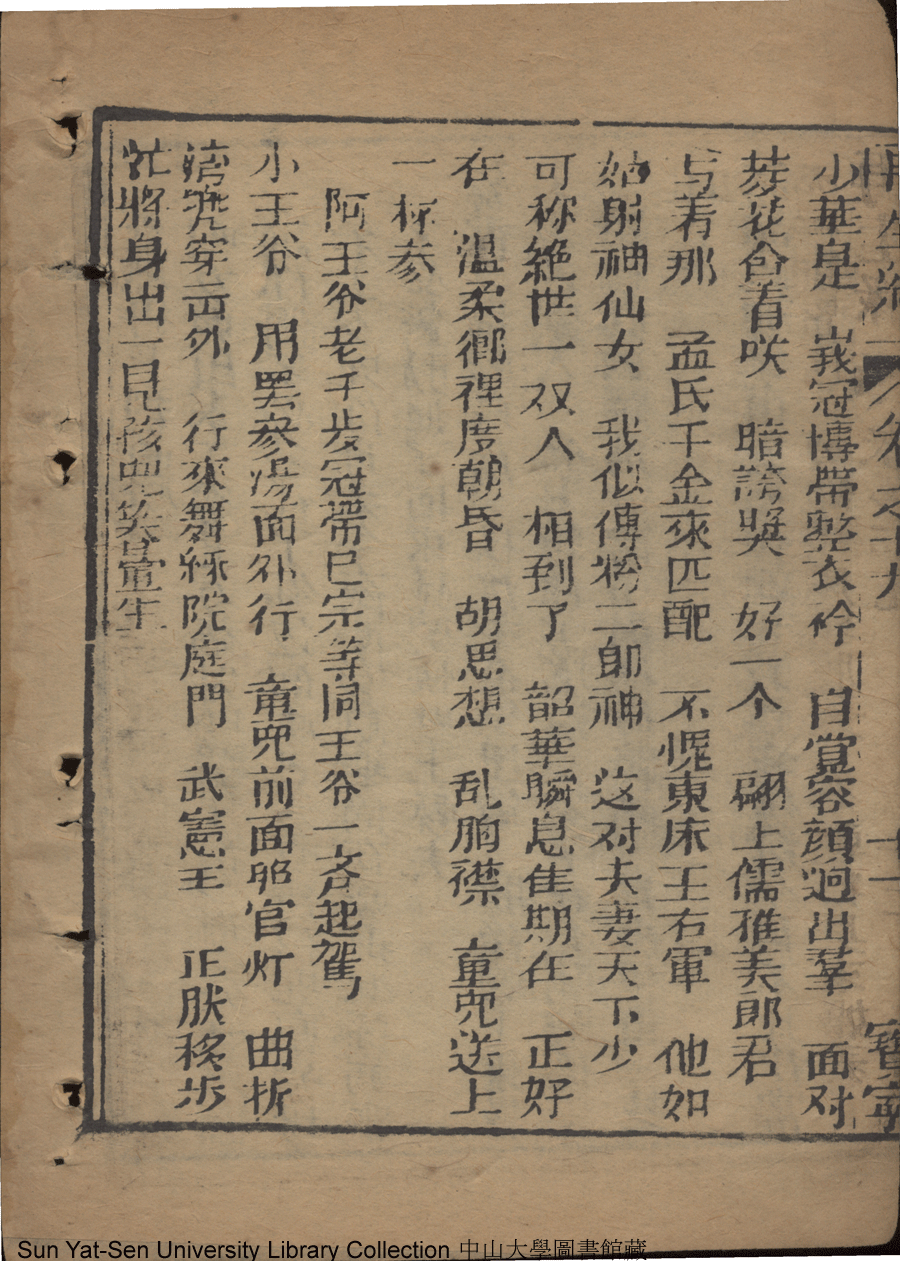 再生緣 卷之十九 十一 寶寧
少華身 峩冠博帶整衣衿 自覚容顔迥出羣 面对
菱花含着咲 暗誇奬 好一个 翩上儒雅美郎君
与着那 孟氏千金來匹配 不愧東床王右軍 他如
姑射神仙女 我似傳粉二郎神 这对夫妻天下少
可称絶世一双人 相到了 韶華瞬息隹期在 正好
在 温柔鄉裡度朝昏 胡思想 乱胸襟 童児送上
一杯参
阿王爷老千歩冠帶巳完等同王爷一斉起駕
小王爷 用罢参湯面外行 童児前面邸官灯 曲折
穿云外 行來舞綵院庭門 武憲王 正肰移步
忙將身出一見孩児笑臺生
Sun Yat-Sen University Library Collection 中山大學圖書館藏